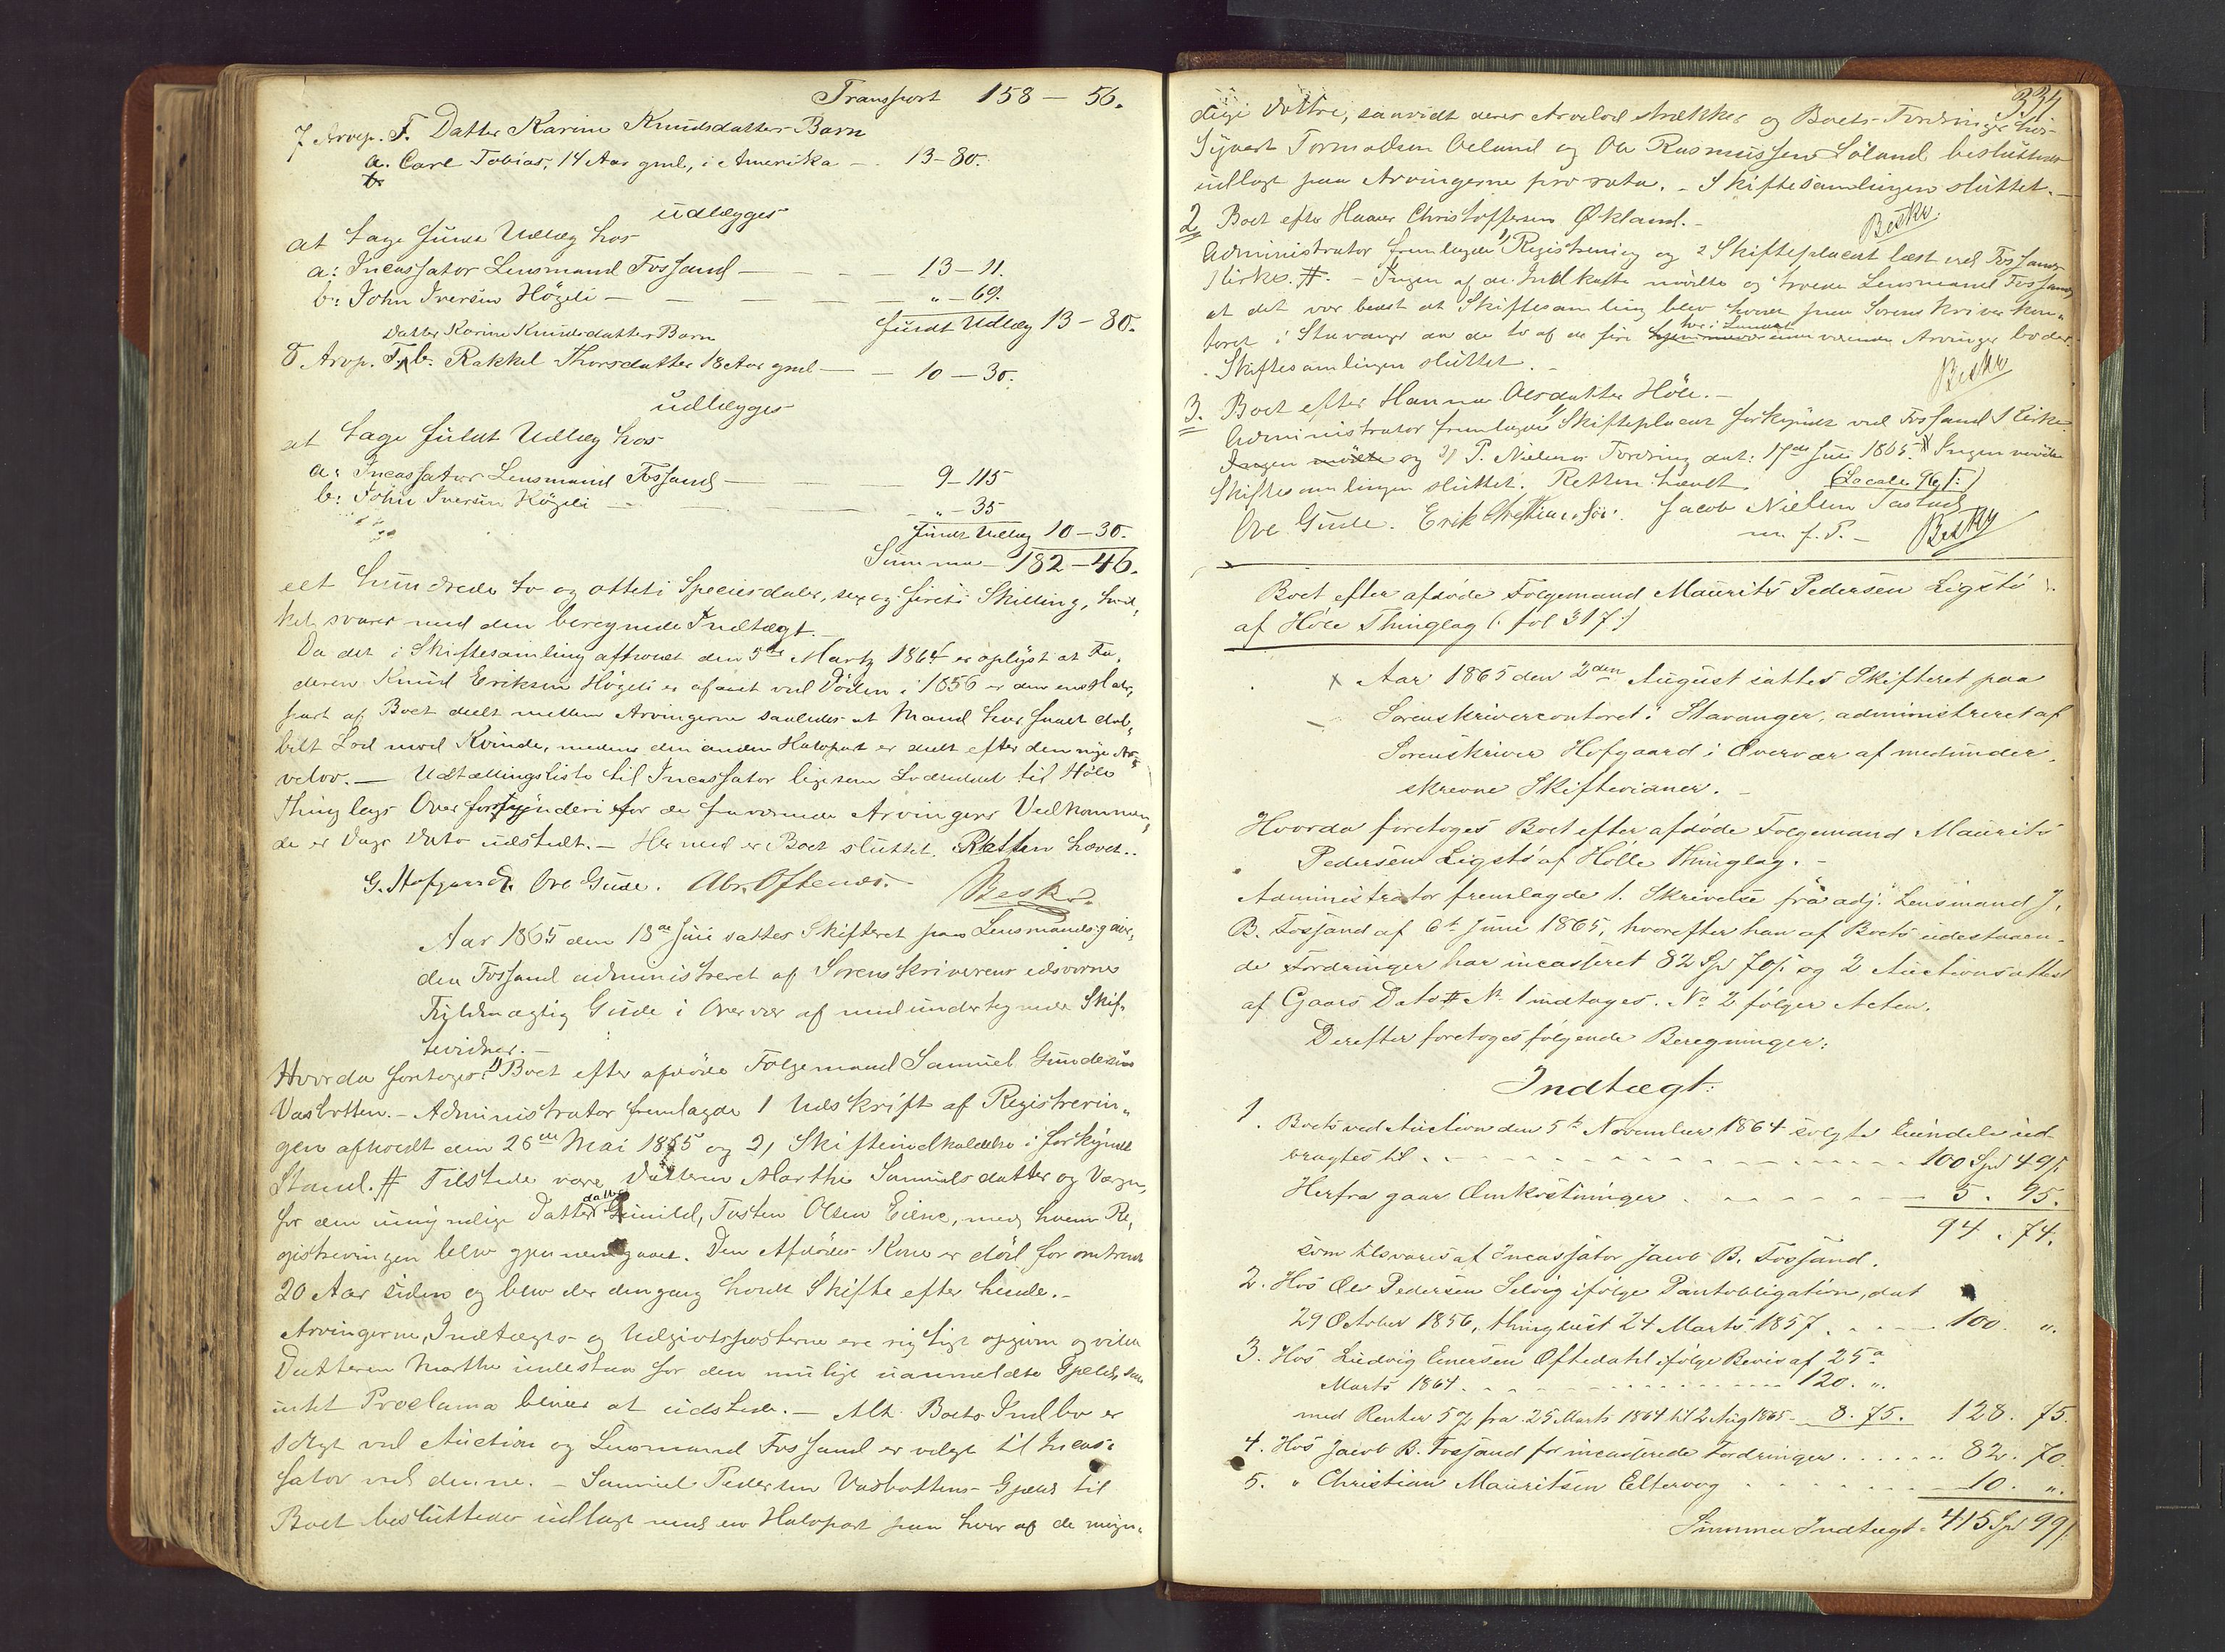 Transport 158 – 56.
7 Arvep. F. Datter Karine Knudsdatters Barn
a. Carl Tobias, 14 Aar gml, i Amerika – 13 – 80.
b.
udlægges
at tage fuldt Udlæg hos
a: Incassator Lensmand Fossand – – – 13 – 11.
b: John Iversen Högeli – – – „ – 69.
fuldt Udlæg 13 – 80.
Datter Karine Knudsdatters Barn
8 Arvp. F, b. Rakkel Thorsdatter 18 Aar gml – – 10 – 30.
udlægges
at tage fuldt Udlæg hos
a: Incassator Lensmand Fossand – – – 9 – 115
b: John Iversen Högeli – – – „ – 35
fuldt Udlæg 10 – 30.
Summa – 182 – 46.
eet hundrede to og otteti Speciesdaler, sex og fireti Skilling, hvil„
ket svarer med den beregnede Indtægt.
Da det i Skiftesamling afholdt den 5te Martz 1864 er oplyst at Fa„
deren Knud Eriksen Högeli er afgaaet ved Döden i 1856 er den ene Halv„
part af Boet deelt mellem Arvingerne saaledes at Mand har faaet dob„
belt Lod mod Kvinde, medens den anden Halvpart er deelt efter den nye Ar„
velov. – Udtællingsliste til Incassator ligesom Lodseddel til Höle
Thinglags Overformynderi for de fraværende Arvingers Vedkommen„
de er Dags Dato udstedt. – Hermed er Boet sluttet. Retten hævet..
G. Hofgaard. Ove Gude. Abr. Oftenæs. – Beskr.
Aar 1865 den 18de Juli sattes Skifteret paa Lensmandsgaar„
den Fossand administreret af Sorenskriverens edsvorne
Fuldmægtig Gude i Overvær af medundertegnede Skif„
tevidner. –
Hvorda foretoges: 1) Boet efter afdöde Følgemand Samuel Gundersen
Vasbotten. – Administrator fremlagde 1 Udskrift af Registrerin„
gen afholdt den 26de Mai 1865 og 2, Skifteindkaldelse i forkyndt
Stand. # Tilstede vare Datteren Marthe Samuelsdatter og Værge„
for den umyndige Datter Gunild, Tosten Olsen Eiene, med hvem Re„
gistreringen blev gjennemgaaet. Den Afdödes Kone er död for omtrent
20 Aar siden og blev der dengang holdt Skifte efter hende. –
Arvingerne, Indtægts- og Udgivtsposterne ere rigtigt opgivne og vilde
Datteren Marthe indestaa for den mulige uanmeldte Gjæld, saa
intet Proclama bliver at udstede. – Alt Boets Indbo er
solgt ved Auction og Lensmand Fossand er valgt til Incas„
sator ved denne. – Samuel Pedersen Vasbottens Gjæld til
Boet besluttedes udlagt med en Halvpart paa hver af de myn„
334
dige Döttre, saavidt deres Arvelod strækker og Boets Fordringer hos
Sjvert Tormodsen Aeland og Ole Rasmussen Löland besluttedes
udlagt paa Arvingerne pro rata. – Skiftesamlingen sluttet. –
Beskr.
2, Boet efter Haaver Christoffersen Økland. –
Administrator fremlagde 1, Registrering og 2 Skifteplacat læst ved Fossands
Kirke. #. – Ingen af de Indkaldte mödte og troede Lensmand Fossand
at det var bedst at Skiftesamling blev holdt paa Sorenskriverkon„
toret i Stavanger da de to af de fire her i Landet værende Arvinger boede.
Skiftesamlingen sluttet. –
Beskr
3. Boet efter Hanna Olsdatter Höle. –
Administrator fremlagde 1, Skifteplacat forkyndt ved Fossand Kirke
Ingen mödte og 2) P. Nielsens Fordring dat: 17de Juli 1865. # Ingen mödte
Skiftesamlingen sluttet. Retten hævet. (Locale 96 /:)
Ove Gude. Erik Christiansen. Jacob Nielsen Tastad
m. f. P. – Beskr
Boet efter afdöde Følgemand Maurits Pedersen Ligstö
af Höle Thinglag (: fol 317 :)
x Aar 1865 den 2den August sattes Skifteret paa
Sorenskrivercontoret i Stavanger, administreret af
Sorenskriver Hofgaard i Overvær af medunder„
skrevne Skiftevidner. –
Hvorda foretoges Boet efter afdöde Følgemand Maurits
Pedersen Ligstö af Hölle Thinglag. –
Administrator fremlagde 1. Skrivelse fra adj. Lensmand J.
B. Fossand af 6te Juni 1865, hvorefter han af Boets udestaaen„
de Fordringer har incasseret 82 Spd 70 s. og 2 Auctionsattest
af Gaars Dato # No. 1 indtages. No 2 følger Acten.
Derefter foretoges følgende Beregninger:
Indtægt:
1. Boets ved Auction den 5te November 1864 solgte Eiendele ud-
bragtes til . – – – 100 Spd 49 s.
Herfra gaar Omkostninger . – – – 5. 95.
94. 74.
som tilsvares af Incassator Jacob B. Fossand.
2. Hos Ole Pedersen Selvig ifølge Pantobligation, dat
29 October 1856, thinglæst 24 Marts 1857 . – – 100. „.
3. Hos Ludvig Einersen Oftedal ifølge Bevis af 25de
Marts 1864 . – – – 120. „.
med Renter 5 % fra 25 Marts 1864 til 2 Aug 1865 – 8. 75. 128. 75.
4. Hos Jacob B. Fossand for incasserede Fordringer . . . . . . 82. 70.
5. „ Christian Mauritsen Eltervog . – – – 10. „.
Summa Indtægt – 415 Spd 99 s.